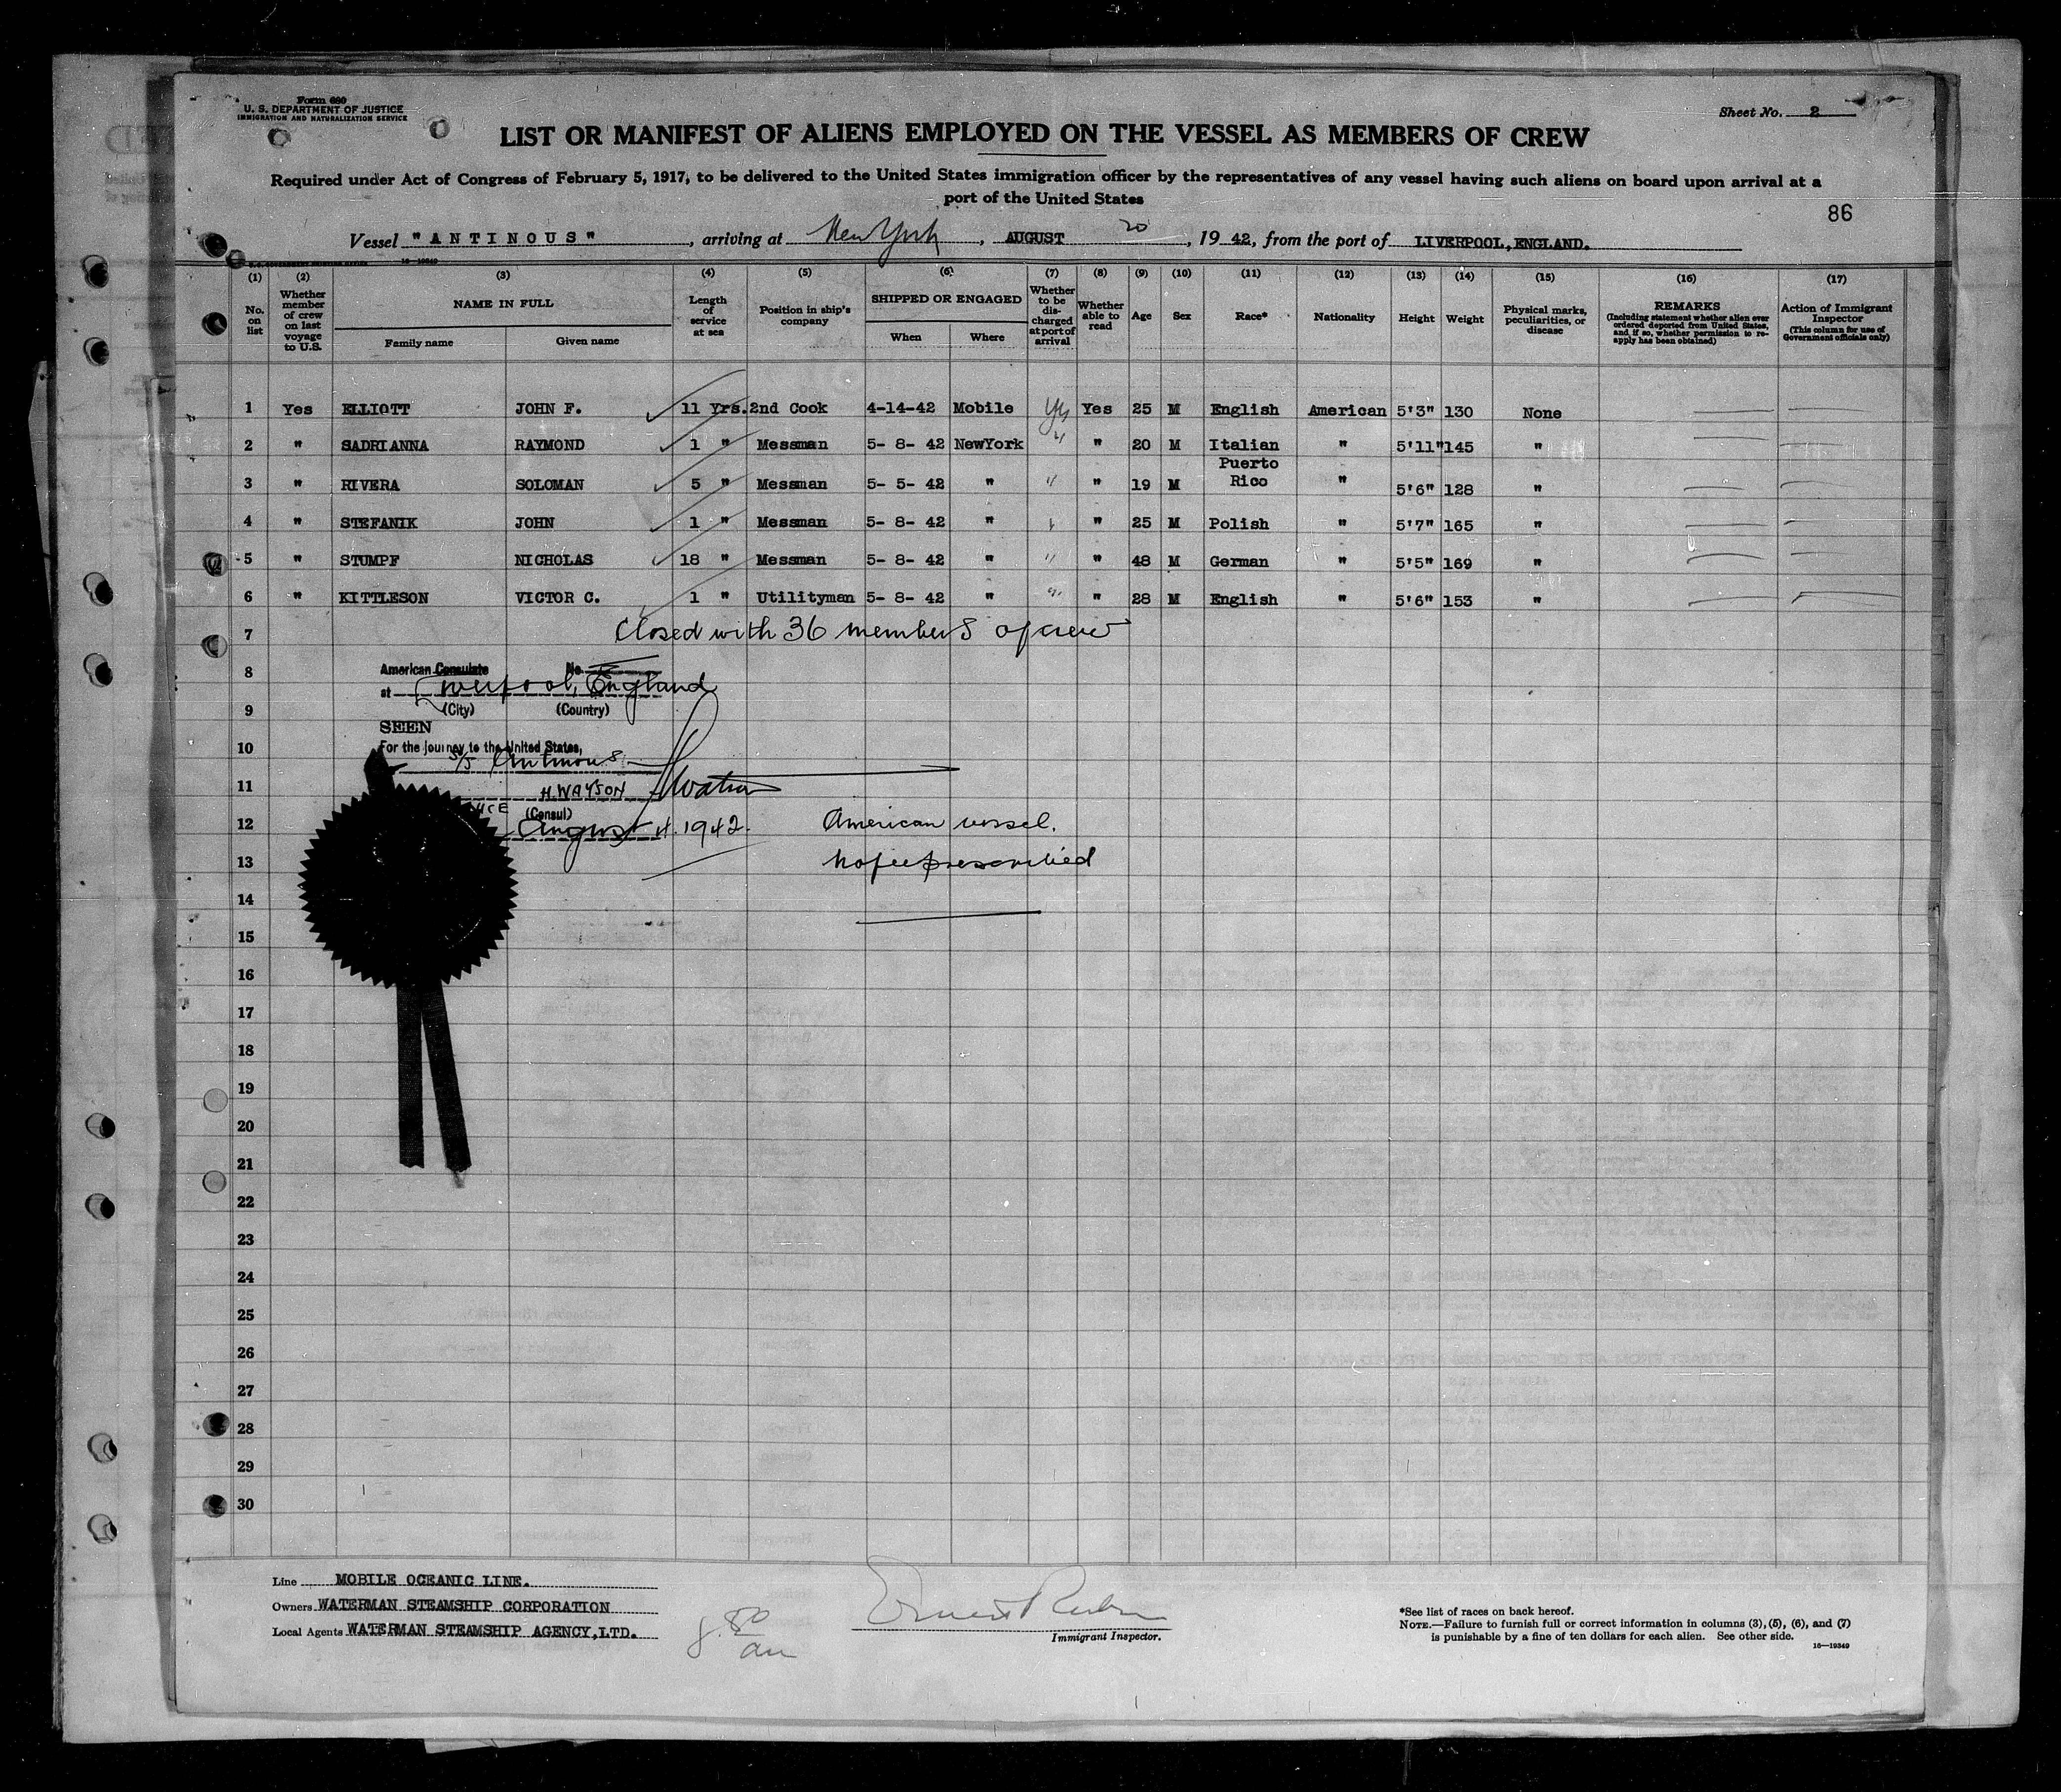 Form 680
U. S. DEPARTMENT OF JUSTICE
IMMIGRATION AND NATURALIZATION SERVICE
Sheet No. 2
LIST OR MANIFEST OF ALIENS EMPLOYED ON THE VESSEL AS MEMBERS OF CREW
Required under Act of Congress of February 5, 1917, to be delivered to the United States immigration officer by the representatives of any vessel having such aliens on board upon arrival at a
port of the United States
86
Vessel "ANTINOUS", arriving at New York, AUGUST 20, 1942, from the port of LIVERPOOL, ENGLAND.
16—19349
(1) (2) (3) (4) (5) (6) (7) (8) (9) (10) (11) (12) (13) (14) (15) (16) (17)
No. on list
Whether member of crew on last voyage to U.S.
NAME IN FULL
Family name Given name
Length of service at sea
Position in ship's company
SHIPPED OR ENGAGED
When Where
Whether to be discharged at port of arrival
Whether able to read
Age
Sex
Race*
Nationality
Height
Weight
Physical marks, peculiarities, or disease
REMARKS
(Including statement whether alien ever ordered deported from United States, and if so, whether permission to reapply has been obtained)
Action of Immigrant Inspector
(This column for use of Government officials only)
1 Yes ELLIOTT JOHN F. 11 Yrs. 2nd Cook 4-14-42 Mobile Yes Yes 25 M English American 5'3" 130 None
2 " SADRIANNA RAYMOND 1 " Messman 5- 8- 42 NewYork " " 20 M Italian " 5'11" 145 "
3 " RIVERA SOLOMAN 5 " Messman 5- 5- 42 " " " 19 M Puerto Rico " 5'6" 128 "
4 " STEFANIK JOHN 1 " Messman 5- 8- 42 " " " 25 M Polish " 5'7" 165 "
5 " STUMPF NICHOLAS 18 " Messman 5- 8- 42 " " " 48 M German " 5'5" 169 "
6 " KITTLESON VICTOR C. 1 " Utilityman 5- 8- 42 " " " 28 M English " 5'6" 153 "
7 Closed with 36 members of crew
8 American Consulate No.
at Liverpool, England
9 (City) (Country)
SEEN
10 For the journey to the United States,
S/S Antinous
11 H. WATSON HWatson
(Consul)
12 August 4. 1942. American vessel.
13 No fee prescribed
14
15
16
17
18
19
20
21
22
23
24
25
26
27
28
29
30
Line MOBILE OCEANIC LINE.
Owners WATERMAN STEAMSHIP CORPORATION
Local Agents WATERMAN STEAMSHIP AGENCY, LTD.
Immigrant Inspector.
*See list of races on back hereof.
NOTE.—Failure to furnish full or correct information in columns (3), (5), (6), and (7)
is punishable by a fine of ten dollars for each alien. See other side.
16—19349